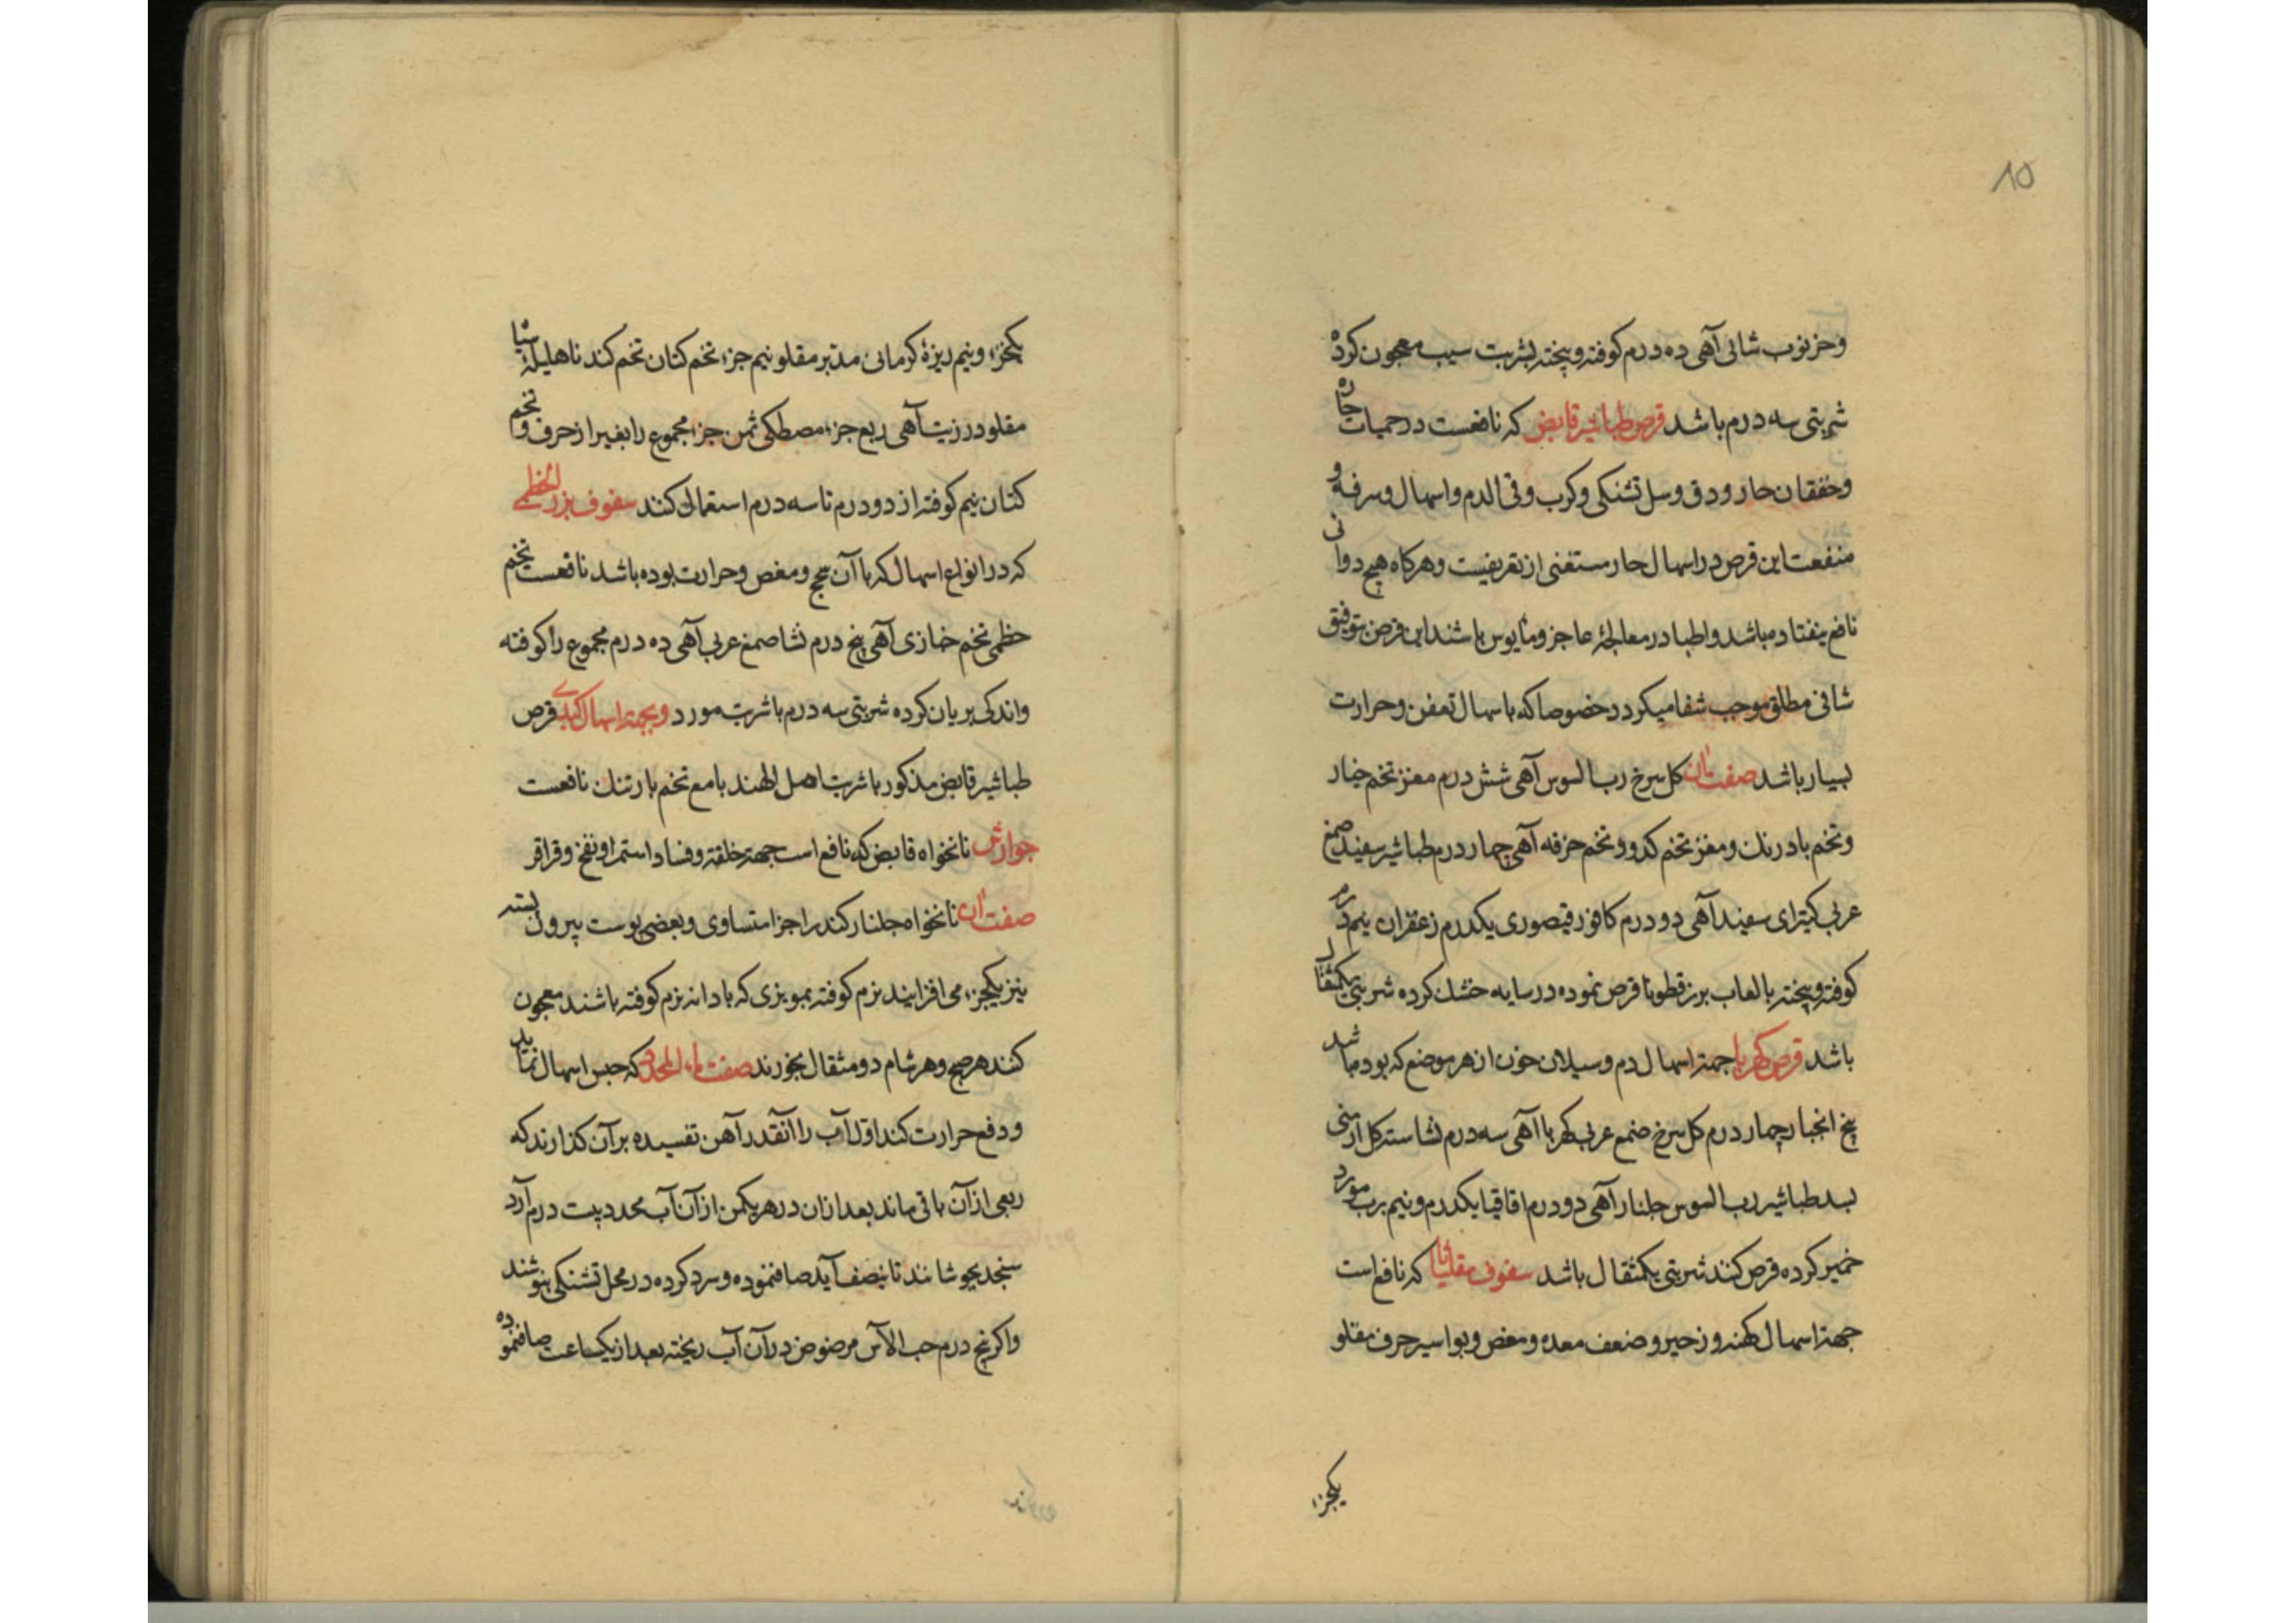 ۸۵
وخرنوب شامی آهی ده درم کوفته و پخته بشربت سیب معجون کرده
شربتی سه درم باشد قرص طباشیر قابض که نافعست در حمیات حاره
وخفقان حار و دق وسل تشنکی و کرب وقی الدم واسهال وسرفه و
منفعت این قرص در اسهال حار مستغنی از تعریفست وهرکاه هیچ دوائی
نافع نیفتاده باشد واطبا در معالجهٔ عاجز ومأیوس باشند این قرص بتوفیق
شافی مطلق موجب شفا میکردد خصوصا که باسهال تعفن وحرارت
بسیار باشد صفت آن کل سرخ رب السوس آهی شش درم مغز تخم خیار
وتخم بادرنک ومغز تخم کدو وتخم خرفه آهی چهار درم طباشیر سفید صمغ
عربی کتیرای سفید آهی دو درم کافور قیصوری یکدرم زعفران نیم درم
کوفته و پخته بالعاب بزرقطونا قرص نموده در سایه خشک کرده شربتی یکمثقال
باشد قرص کهربا جهة اسهال دم وسیلان خون از هر موضع که بوده باشد
بیخ انجبار چهار درم کل سرخ صمغ عربی کهربا آهی سه درم نشاسته کل ارمنی
بسد طباشیر رب السوس جلنار آهی دو درم اقاقیا یکدرم ونیم برب مورد
خمیر کرده قرص کنند شربتی یکمثقال باشد سفوف مقلیاثا که نافع است
جهة اسهال کهنه و زحیر و ضعف معده ومغص وبواسیر حرف مقلو
یکجزء
یکجزء ونیم زیرهٔ کرمانی مدبر مقلو نیم جزء تخم کتان تخم کندنا هلیلهٔ سیاه
مقلو در زیت آهی ربع جزء مصطکی ثمن جزء مجموع را بغیر از حرف و تخم
کتان نیم کوفته از دو درم تا سه درم استعمال کنند سفوف بزر الخطمی
که در انواع اسهال که با آن سحج ومغص وحرارت بوده باشد نافعست تخم
خطمی تخم خبازی آهی پنج درم نشا صمغ عربی آهی ده درم مجموع را کوفته
واندکی بریان کرده شربتی سه درم باشربت مورد وبجهة اسهال کبدی قرص
طباشیر قابض مذکور باشربت اهل الهند بامع تخم بارتنک نافعست
جوارش نانخواه قابض که نافع است جهة خلفه وفساد استمرا ونفخ وقراقر
صفت آن نانخواه جلنار کندر اجزا متساوی وبعضی پوست بیرون پسته
نیز یکجزء می افزایند نرم کوفته بمویزی که بادانه نرم کوفته باشند معجون
کنند هر صبح وهر شام دو مثقال بخورند صفت ماء المحدد که حبس اسهال نماید
ودفع حرارت کند اول آب را آنقدر آهن تفسیده بر آن کذارند که
ربعی از آن باقی ماند بعد از ان در هر یکمن از آن آب محدد بیست درم آرد
سنجد بجوشانند تا بنصف آید صاف نموده وسرد کرده در محل تشنکی بنوشند
واکر پنج درم حب الآس مرضوض در آن آب ریخته بعد از یکساعت صاف نموده